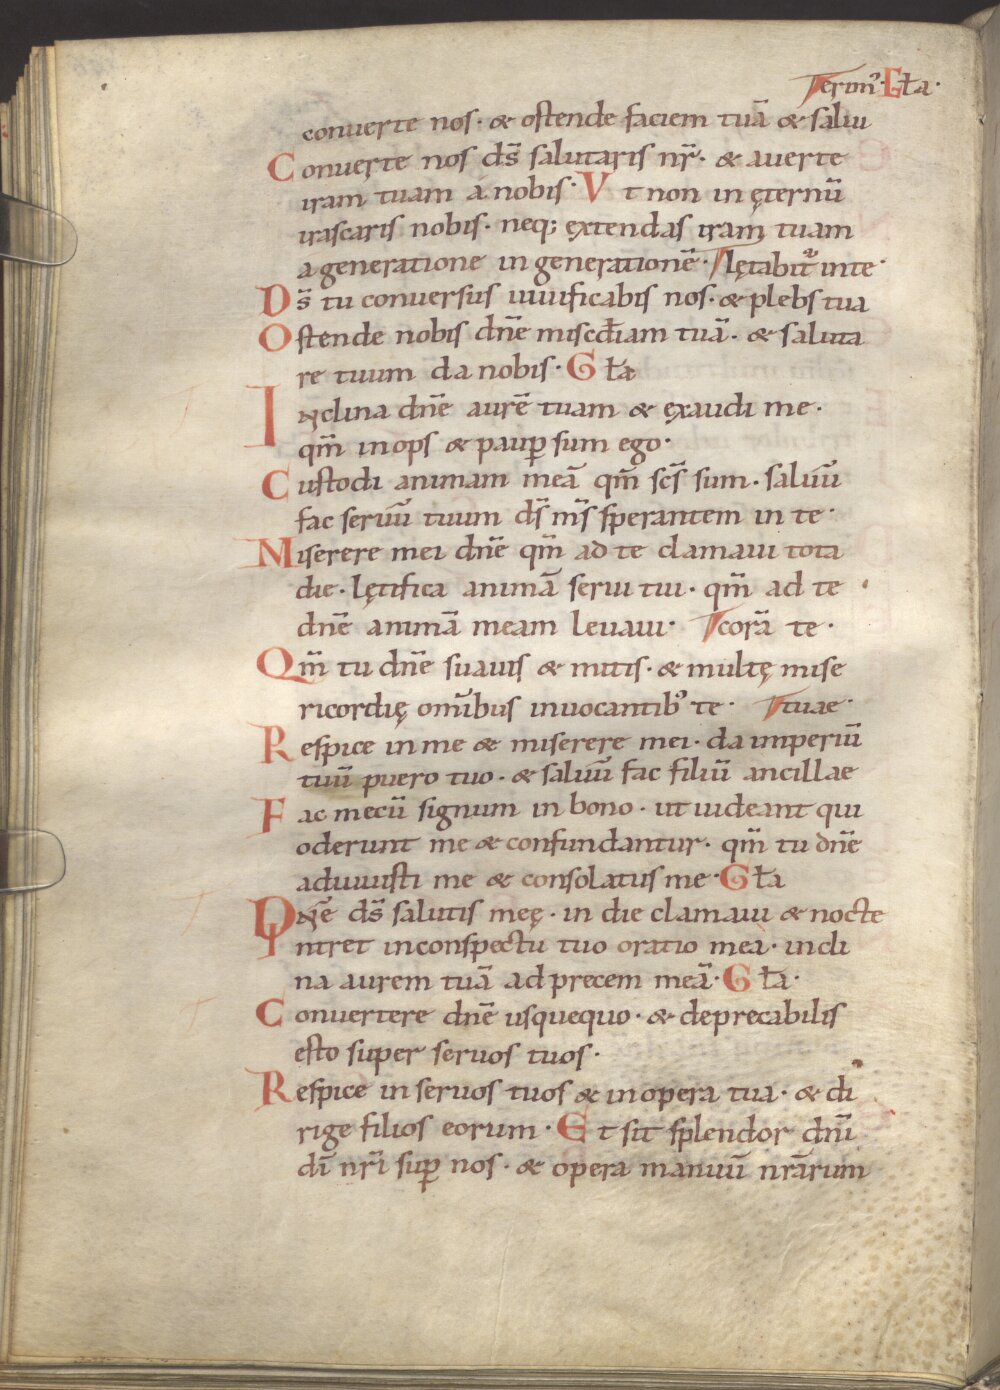 erim᷒· Gła·
conuerte nos· & ostende faciem tuā & salui
Conuerte nos d̄s salutaris nr̄· & auerte
iram tuam a nobis· Vt non in ęternū
irascaris nobis· neq; extendas iram tuam
a generatione in generationē· lętabit᷑ inte·
D̄s tu conuersus uiuificabis nos· & plebs tua
Ostende nobis dn̄e misc̄diam tuā· & saluta
re tuum da nobis· Gła
Inclina dn̄e aurē tuam & exaudi me·
qm̄ inops & paup̄ sum ego·
Custodi animam meā qm̄ sc̄s sum· saluū
fac seruū tuum d̄s m̄s sperantem in te·
Miserere mei dn̄e qm̄ ad te clamaui tota
die· lętifica animā serui tui· qm̄ ad te
dn̄e animā meam leuaui· corā te·
Qm̄ tu dn̄e suauis & mitis· & multę mise
ricordię om̄ibus inuocantib᷒ te· tuae·
Respice in me & miserere mei· da imperiū
tuū puero tuo· & saluū fac filiū ancillae
Fac mecū signum in bono· ut uideant qui
oderunt me & confundantur· qm̄ tu dn̄e
adiuuisti me & consolatus me· Gła
Dn̄e d̄s salutis meę· in die clamaui & nocte
Intret inconspectu tuo oratio mea· incli
na aurem tuā ad precem meā· Gła·
Conuertere dn̄e usquequo· & deprecabilis
esto super seruos tuos·
Respice in seruos tuos & in opera tua· & di
rige filios eorum· Et sit splendor dn̄i
dī nr̄i sup̄ nos· & opera manuū nr̄arum